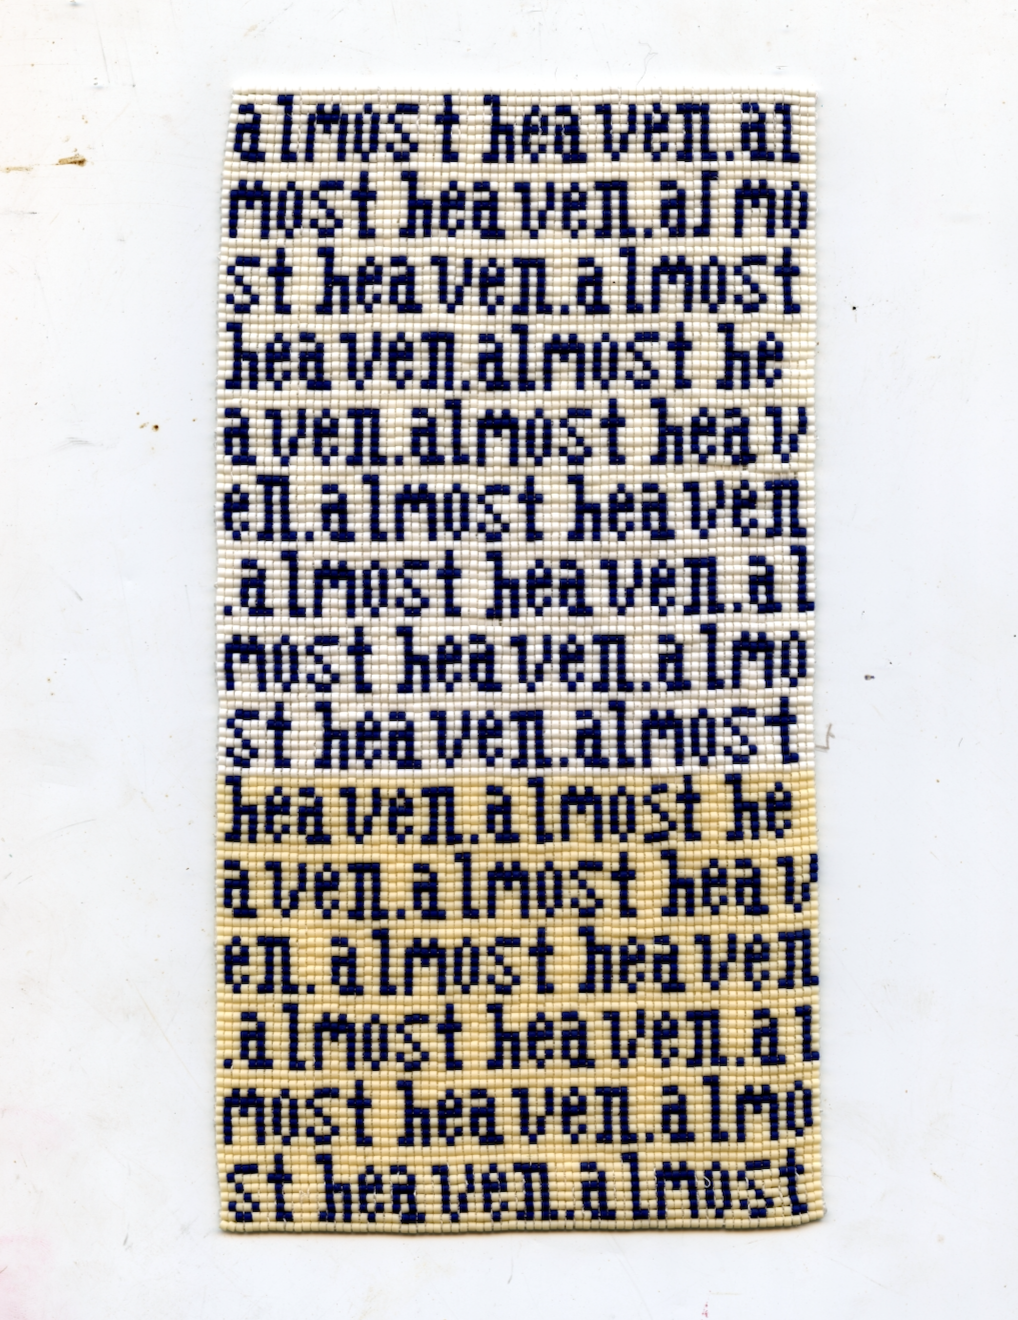 almost heaven.al
most heaven.almo
st heaven.almost
heaven.almost he
aven.almost heav
en.almost heaven
.almost heaven.al
most heaven.almo
st heaven.almost
heaven.almost he
aven.almost heav
en.almost heaven
.almost heaven.al
most heaven.almo
st heaven.almost